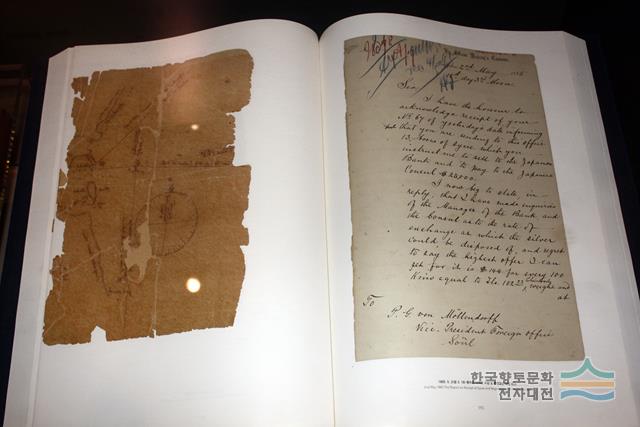 2nd May
day 3rd Moon
Sir
I have the honour to
acknowledge receipt of your
No 67 of yesterdays date informing
that you are sending to this office
13 boxes of sycee which you
instruct me to sell to the Japanese
Bank and to pay to the Japanese
Consul $23000.
I now beg to state, in
reply, that I have made inquiries
of the Manager of the Bank and
the Consul as to the rate of
exchange at which the silver
could be disposed of, and regret
to say the highest offer I can
get for it is $144 for every 100
equal to Tls. 102.23 weight and
at
To
P. G. von Möllendorff
Vice President Foreign Office
Söul
한국향토문화
전자대전